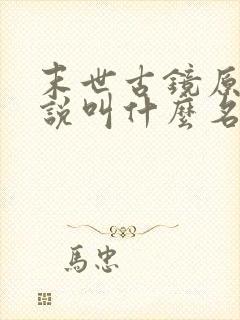 末世古鏡原
說叫什麼名
馬忠